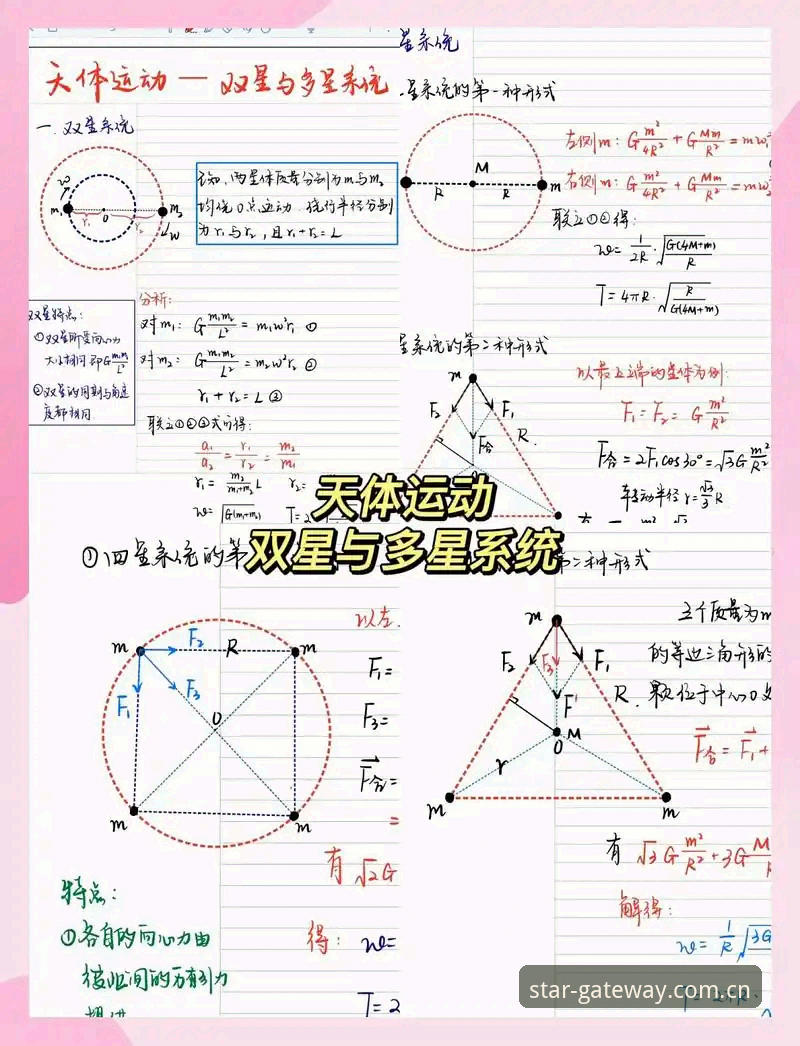 天体运动 — 双星与多星系统
一. 双星系统
ω
m
r₁
o
r₂
m₂
ω
已知, 两星体质量分别为m₁与m₂
均绕O点运动, 绕行半径分别
为r₁与r₂, 且r₁+r₂=L
双星特点:
①双星所受向心力
大小相同 即G m₁m₂/L²
②双星的周期与角速
度都相同.
分析:
对m₁: G m₁m₂/L² = m₁ω²r₁ ①
对m₂: G m₁m₂/L² = m₂ω²r₂ ②
r₁+r₂=L ③
联立①②③式可得:
a₁/a₂ = r₁/r₂ = m₂/m₁
r₁= m₂/(m₁+m₂) L r₂=
ω= G(m₁+m₂) T=2
星系统
星系统的第一种形式
M
R
R
m
左侧m: G m²/4R² + G Mm/R² = mω₁²
右侧m: G m²/4R² + G Mm/R² = mω₂²
联立①②得:
ω= 1/2R · √(G(4M+m)/R)
T=4πR · √(R/G(4M+m))
星系统的第二种形式
m
F₂
F₁
F合
R.
以最上端的星体为例:
F₁=F₂= G m²/R²
F合=2F₁cos30°=√3G m²/R²
转动半径 r= √3/3 R
天体运动
双星与多星系统
①四星系统的第
第二种形式
m
F₂
R
m
F₁
F₃
O
m
m
以左.
F₁=
F₃=
F合=
=
有 √2G
得: ω=
T=2
特点:
①各自的向心力由
彼此间的万有引力
提供
m
F₂
F₃
F₁
F
R.
O
M
r
m
m
三个质量为m
的等边三角形的
颗位于中心O
F合=F₁+
有 √3G m²/R² + 3G M
解得:
ω= 1/R √3G
star-gateway.com.cn